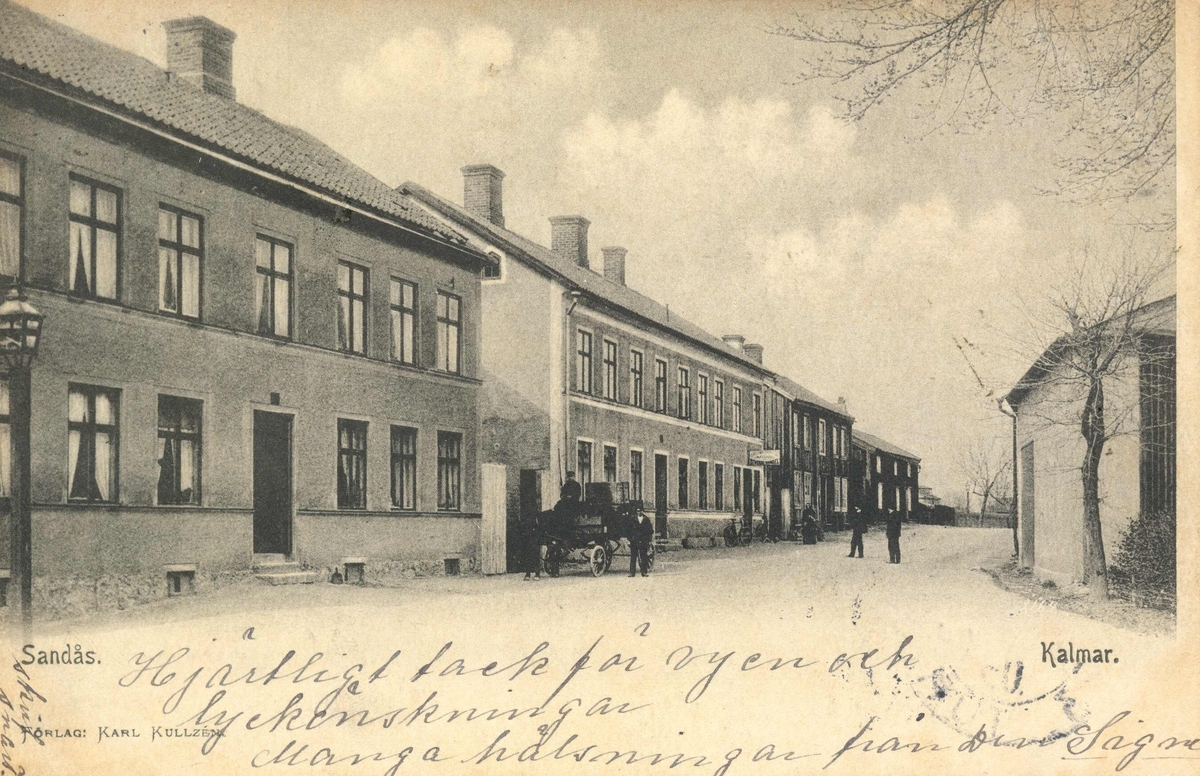 Sandås.
Kalmar.
Hjärtligt tack för vyen och
lyckönskningar
Många hälsningar från din Signe
FÖRLAG: KARL KULLZÉN.